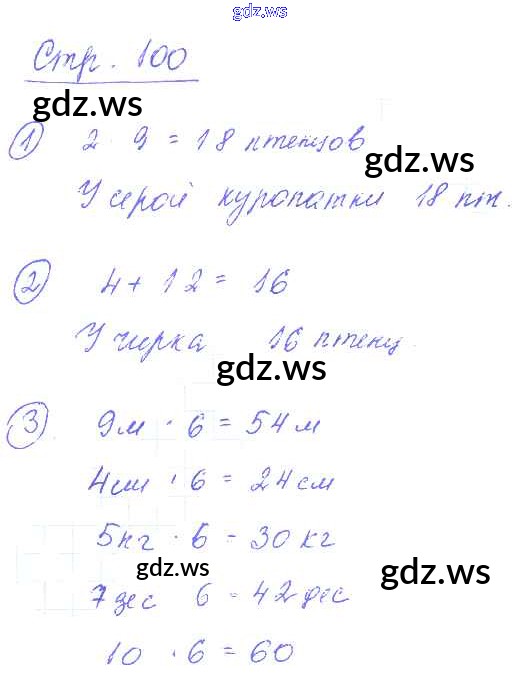 gdz.ws
Стр. 100
gdz.ws
1 2 · 9 = 18 птенцов
gdz.ws
У серой куропатки 18 пт.
2 4 + 12 = 16
У чирка 16 птенц.
gdz.ws
3 9м · 6 = 54 м
4см · 6 = 24 см
5кг · 6 = 30 кг
gdz.ws
gdz.ws
7 дес 6 = 42 дес
10 · 6 = 60